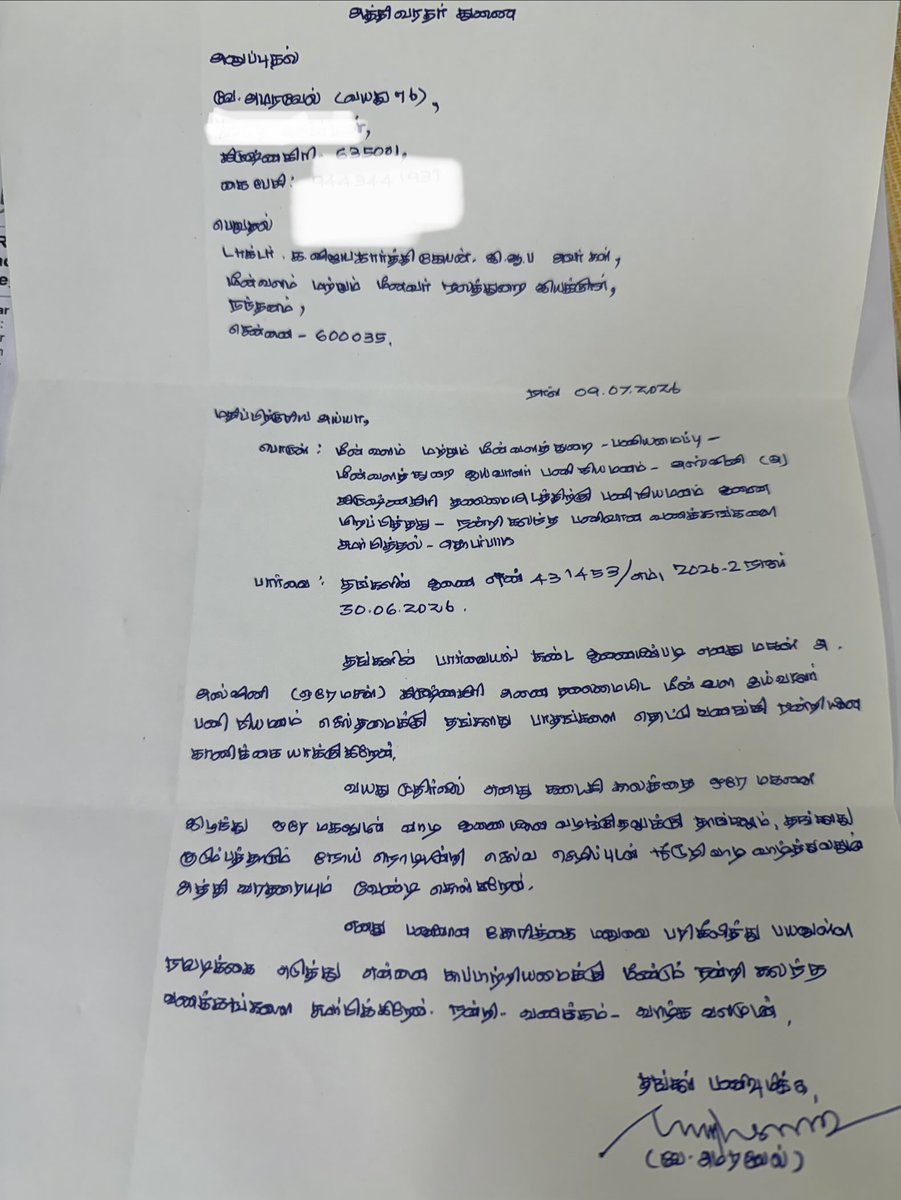 அத்திவரதர் துணை
அனுப்புதல்
வே. அமரவேல் (வயது 76),
கிருஷ்ணகிரி. 635001,
கைபேசி:
பெறுதல்
டாக்டர். க. விஜயகார்த்திகேயன். இ.ஆ.ப அவர்கள்,
மீன்வளம் மற்றும் மீனவர் நலத்துறை இயக்குநர்,
நந்தனம்,
சென்னை - 600035.
நாள் 09.07.2026
மதிப்பிற்குரிய அய்யா,
பொருள் : மீன்வளம் மற்றும் மீன்வளத்துறை - பணியமைப்பு -
மீன்வளத்துறை ஆய்வாளர் பணி நியமனம் - அஸ்வினி (அ)
கிருஷ்ணகிரி தலைமையிடத்திற்கு பணி நியமனம் ஆணை
பிறப்பித்தது - நன்றி கலந்த பணிவான வணக்கங்களை
சமர்பித்தல் - தொடர்பாக
பார்வை : தங்களின் ஆணை எண் 431453/எம்1 2026-2 நாள்
30.06.2026.
தங்களின் பார்வையில் கண்ட ஆணையின்படி எனது மகள் அ.
அஸ்வினி (ஒரே மகள்) கிருஷ்ணகிரி அணை தலைமையிட மீன் வள ஆய்வாளர்
பணி நியமனம் செய்தமைக்கு தங்களது பாதங்களை தொட்டு வணங்கி நன்றியினை
காணிக்கை யாக்குகிறேன்.
வயது முதிர்வில் எனது கடைசி காலத்தை ஒரே மகனை
இழந்து ஒரே மகளுடன் வாழ ஆணையினை வழங்கிதலுக்கு தாங்களும், தங்களது
குடும்பத்தாரும் நோய் நொடியின்றி செல்வ செழிப்புடன் நீடூழி வாழ வாழ்த்துவதுடன்
அத்தி வரதரையும் வேண்டி கொள்கிறேன்.
எனது பணிவான கோரிக்கை மனுவை பரிசீலித்து பயனுள்ள
நடவடிக்கை எடுத்து என்னை காப்பாற்றியமைக்கு மீண்டும் நன்றி கலந்த
வணக்கங்களை சமர்பிக்கிறேன். நன்றி - வணக்கம் - வாழ்க வளமுடன்,
தங்கள் பணிவுமிக்க,
(வே. அமரவேல்)